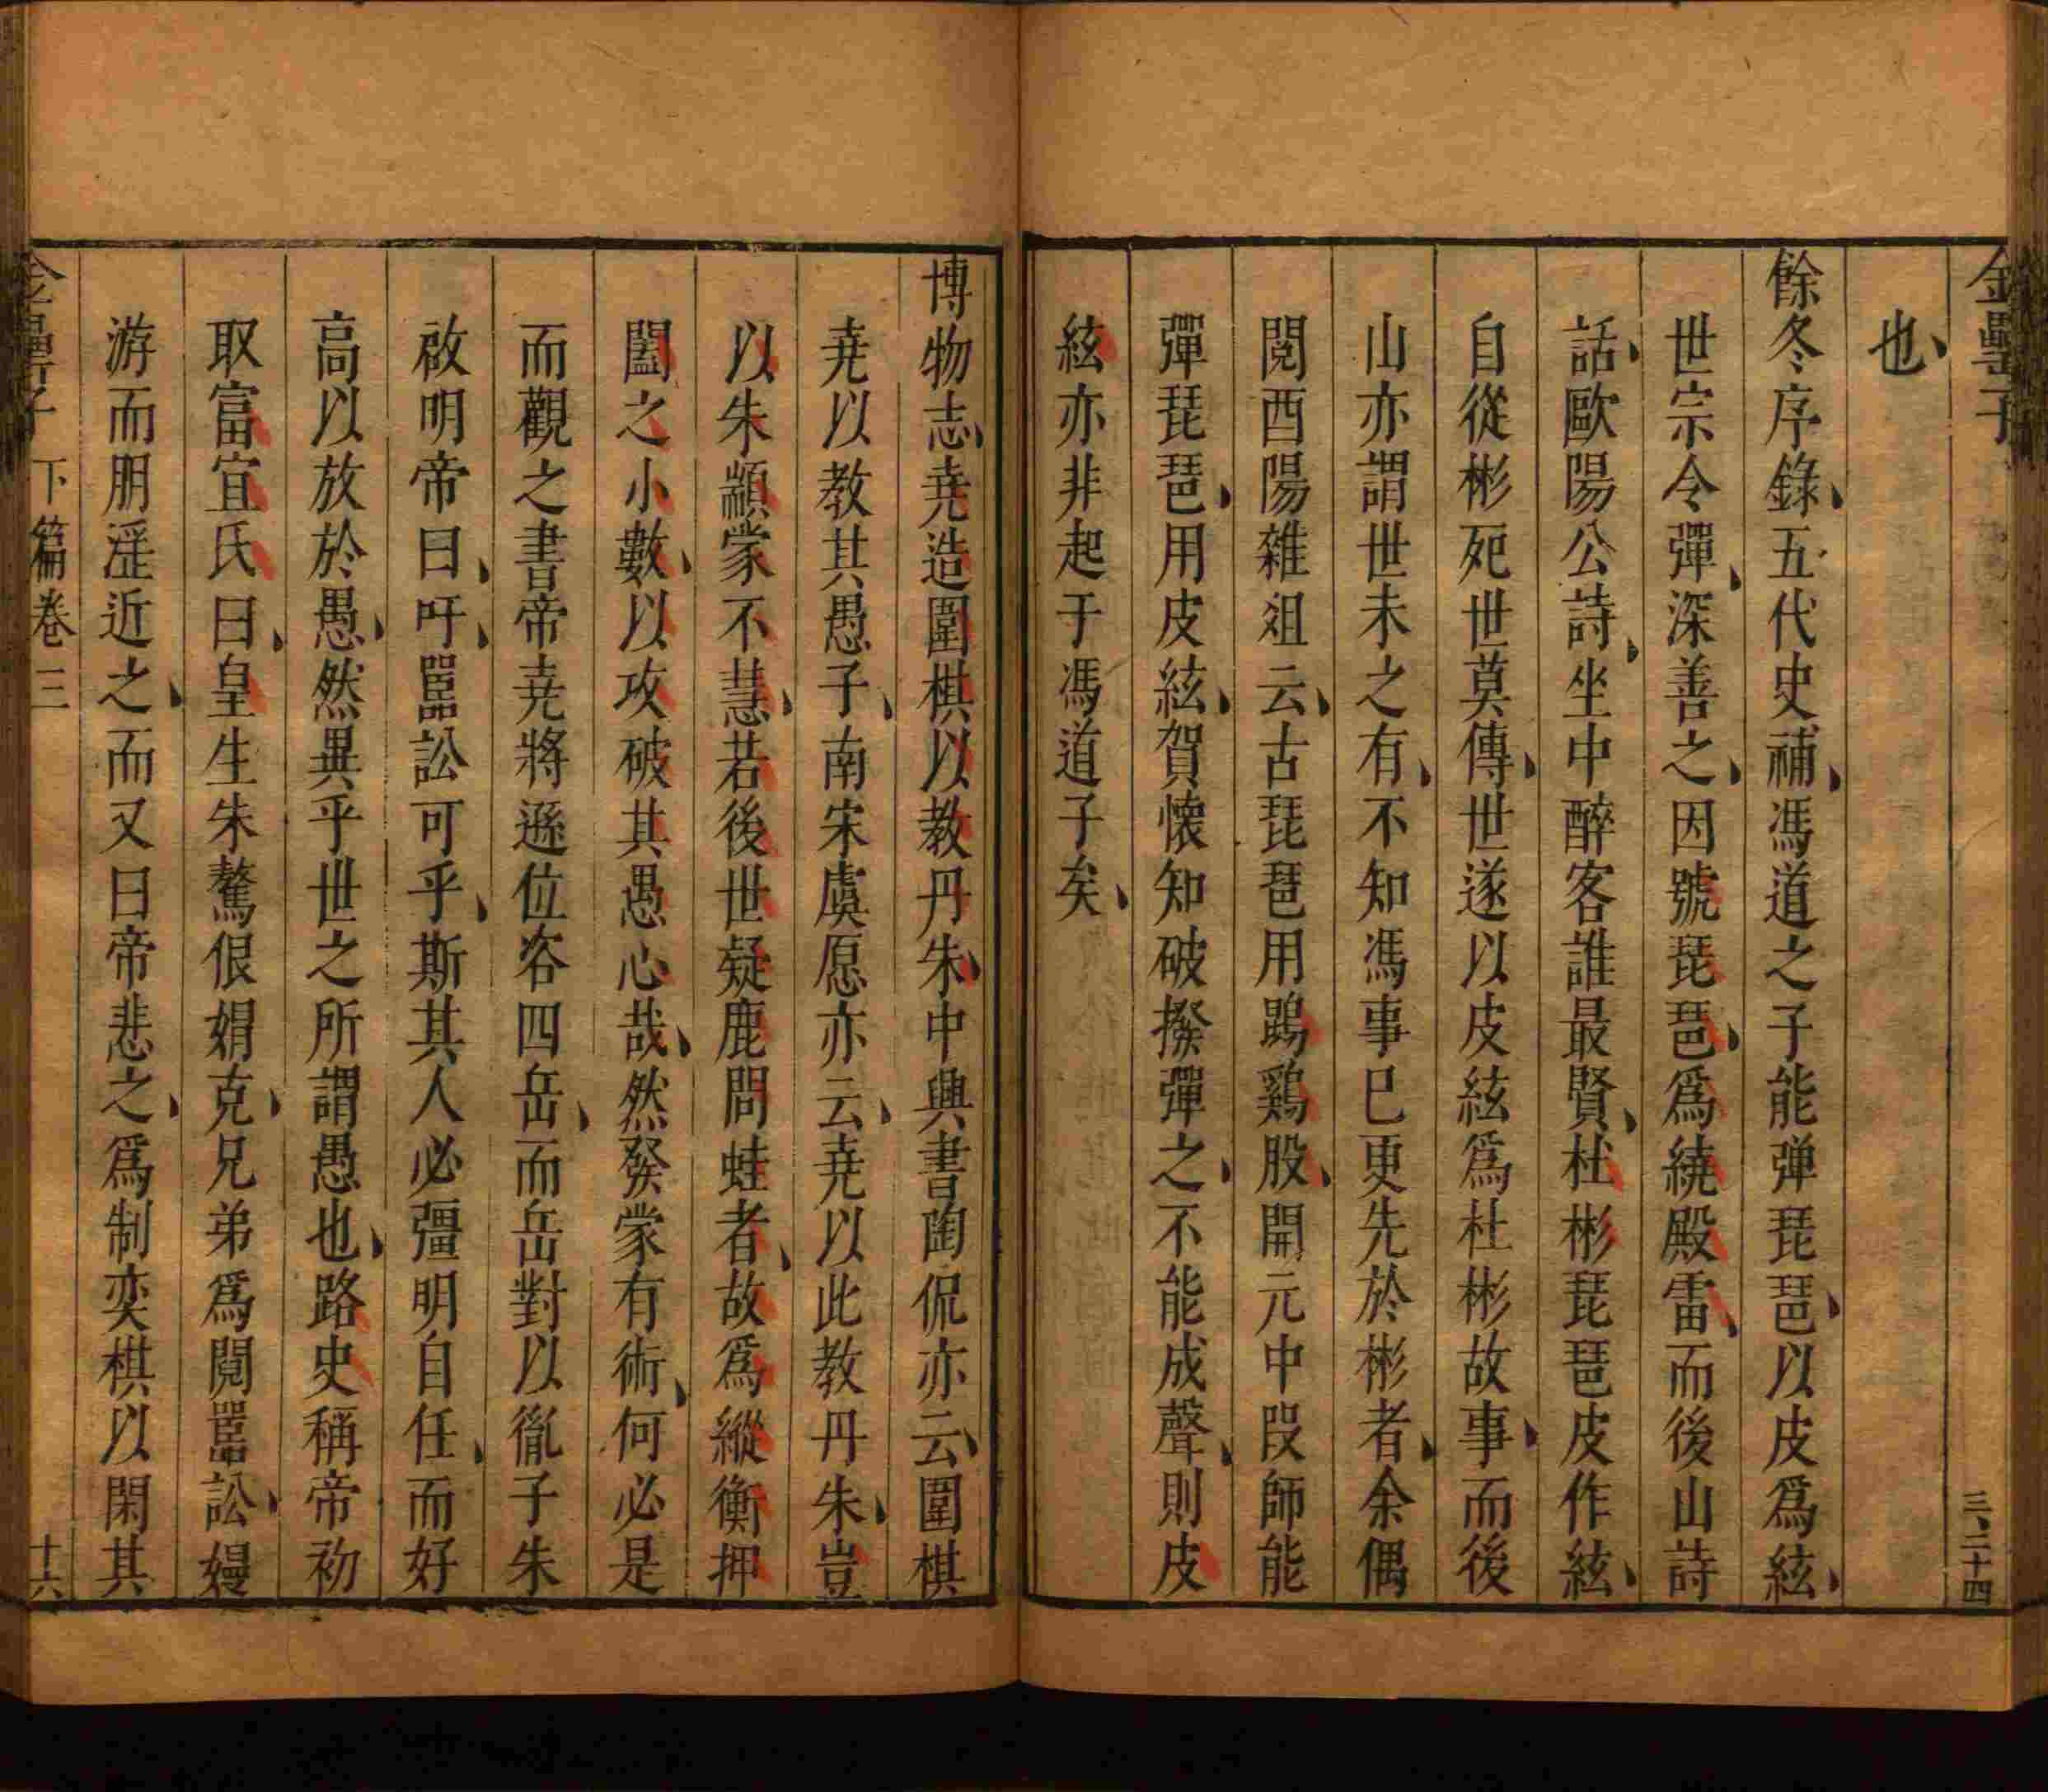 金罍子
三、二十四
也
餘冬序錄五代史補馮道之子能弹琵琶以皮爲絃
世宗令彈深善之因號琵琶爲繞殿雷而後山詩
話歐陽公詩坐中醉客誰最賢杜彬琵琶皮作絃
自從彬死世莫傳世遂以皮絃爲杜彬故事而後
山亦謂世未之有不知馮事已更先於彬者余偶
閱酉陽雜俎云古琵琶用鵾鷄股開元中段師能
彈琵琶用皮絃賀懷知破撥彈之不能成聲則皮
絃亦非起于馮道子矣
博物志堯造圍棋以教丹朱中興書陶侃亦云圍棋
堯以教其愚子南宋虞愿亦云堯以此教丹朱豈
以朱顓蒙不慧若後世疑鹿問蛙者故爲縱衡押
闔之小數以攻破其愚心哉然發蒙有術何必是
而觀之書帝堯將遜位咨四岳而岳對以胤子朱
啟明帝曰吁嚚訟可乎斯其人必彊明自任而好
高以放於愚然異乎世之所謂愚也路史稱帝初
取富宜氏曰皇生朱驁佷娟克兄弟爲鬩嚚訟嫚
游而朋淫近之而又曰帝悲之爲制奕棋以閑其
金罍子 下篇卷三 十六